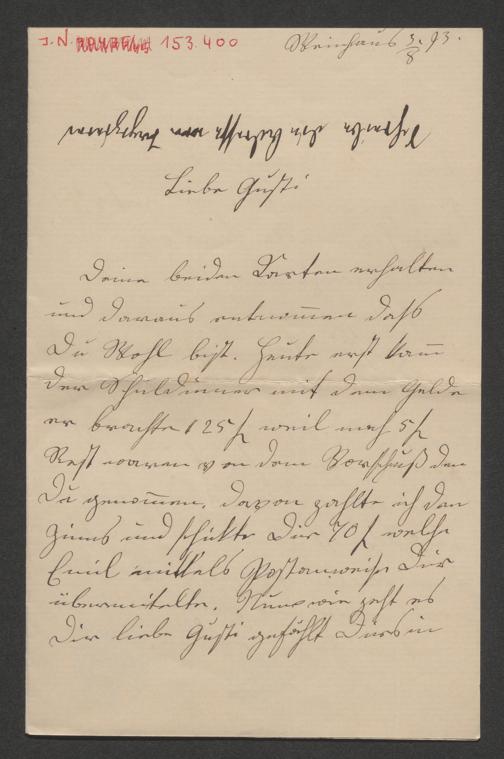 J.N. 153.400
Weinhaus 3./8. 93.
Schreibe die Adresse
Liebe Gusti
Deine beiden Karten erhalten
und daraus entnommen daß
Du Wohl bist. Heute erst kam
der Schuldiener mit dem Gelde
er brachte 125 f weil noch 5 f
Rest waren von dem Vorschuß den
Du genommen. Davon zahlte ich den
Zins und schickte Dir 70 f welche
Emil mittels Postanweis. Dir
übermittelte. Nun wie geht es
Dir liebe Gusti gefällt Dirs in